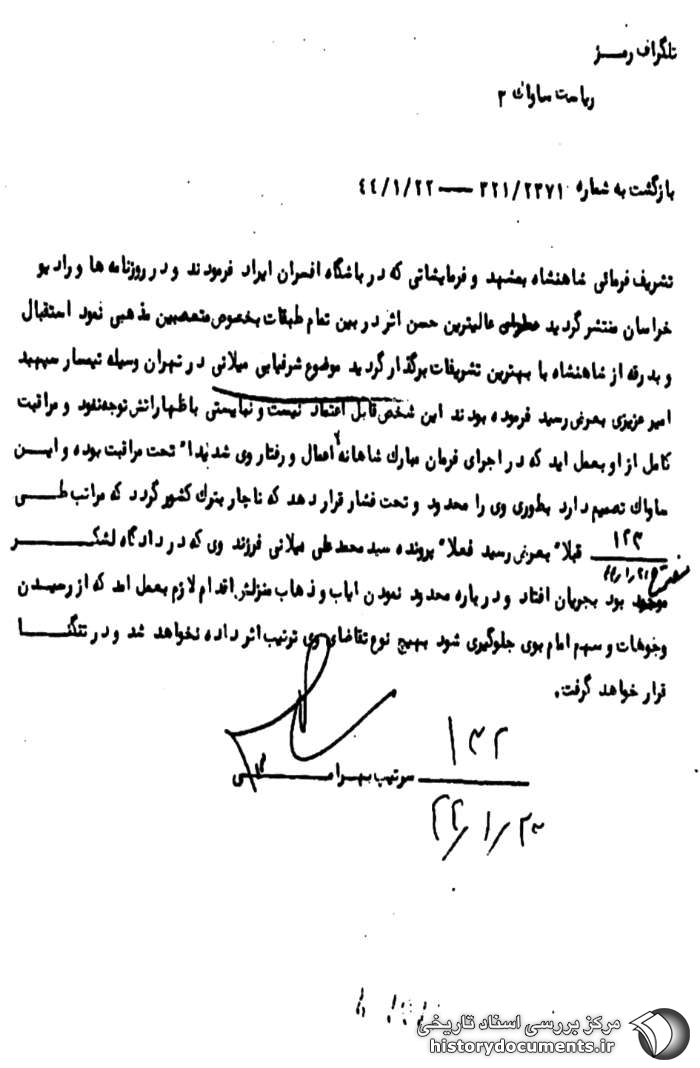 تلگراف رمز
ریاست ساواک ۳
بازگشت به شماره ۳۲۱/۲۳۷۱ — ۴۴/۱/۲۲
تشریف فرمائی شاهنشاه بمشهد و فرمایشاتی که در باشگاه افسران ایراد فرمودند و در روزنامه ها و رادیو
خراسان منتشر گردید عالیترین حسن اثر در بین تمام طبقات بخصوص متعصبین مذهبی نمود استقبال
و بدرقه از شاهنشاه با بهترین تشریفات برگذار گردید موضوع شرفیابی میلانی در تهران وسیله تیمسار سپهبد
امیر عزیزی بعرض رسید فرموده بودند این شخص قابل اعتماد نیست و نبایستی باظهارانش توجه نمود و مراقبت
کامل از او بعمل اید که در اجرای فرمان مبارک شاهانه اعمال و رفتار وی شدیدا" تحت مراقبت بوده و این
ساواک تصمیم دارد بطوری وی را محدود و تحت فشار قرار دهد که ناچار بترک کشور گردد که مراتب طی
۱۲۳ قبلا" بعرض رسید فعلا" پرونده سید محمد علی میلانی فرزند وی که در دادگاه لشکر
۴۴/۱/۲۱
بود بجریان افتاد و درباره محدود نمودن ایاب و ذهاب منزلش اقدام لازم بعمل امد که از رسیدن
وجوهات و سهم امام بوی جلوگیری شود بهیچ نوع تقاضای وی ترتیب اثر داده نخواهد شد و در تنگنا
قرار خواهد گرفت.
سرتیپ بهرامی
۱۳۲
۴۴/۱/۲۳
مرکز بررسی اسناد تاریخی
historydocuments.ir